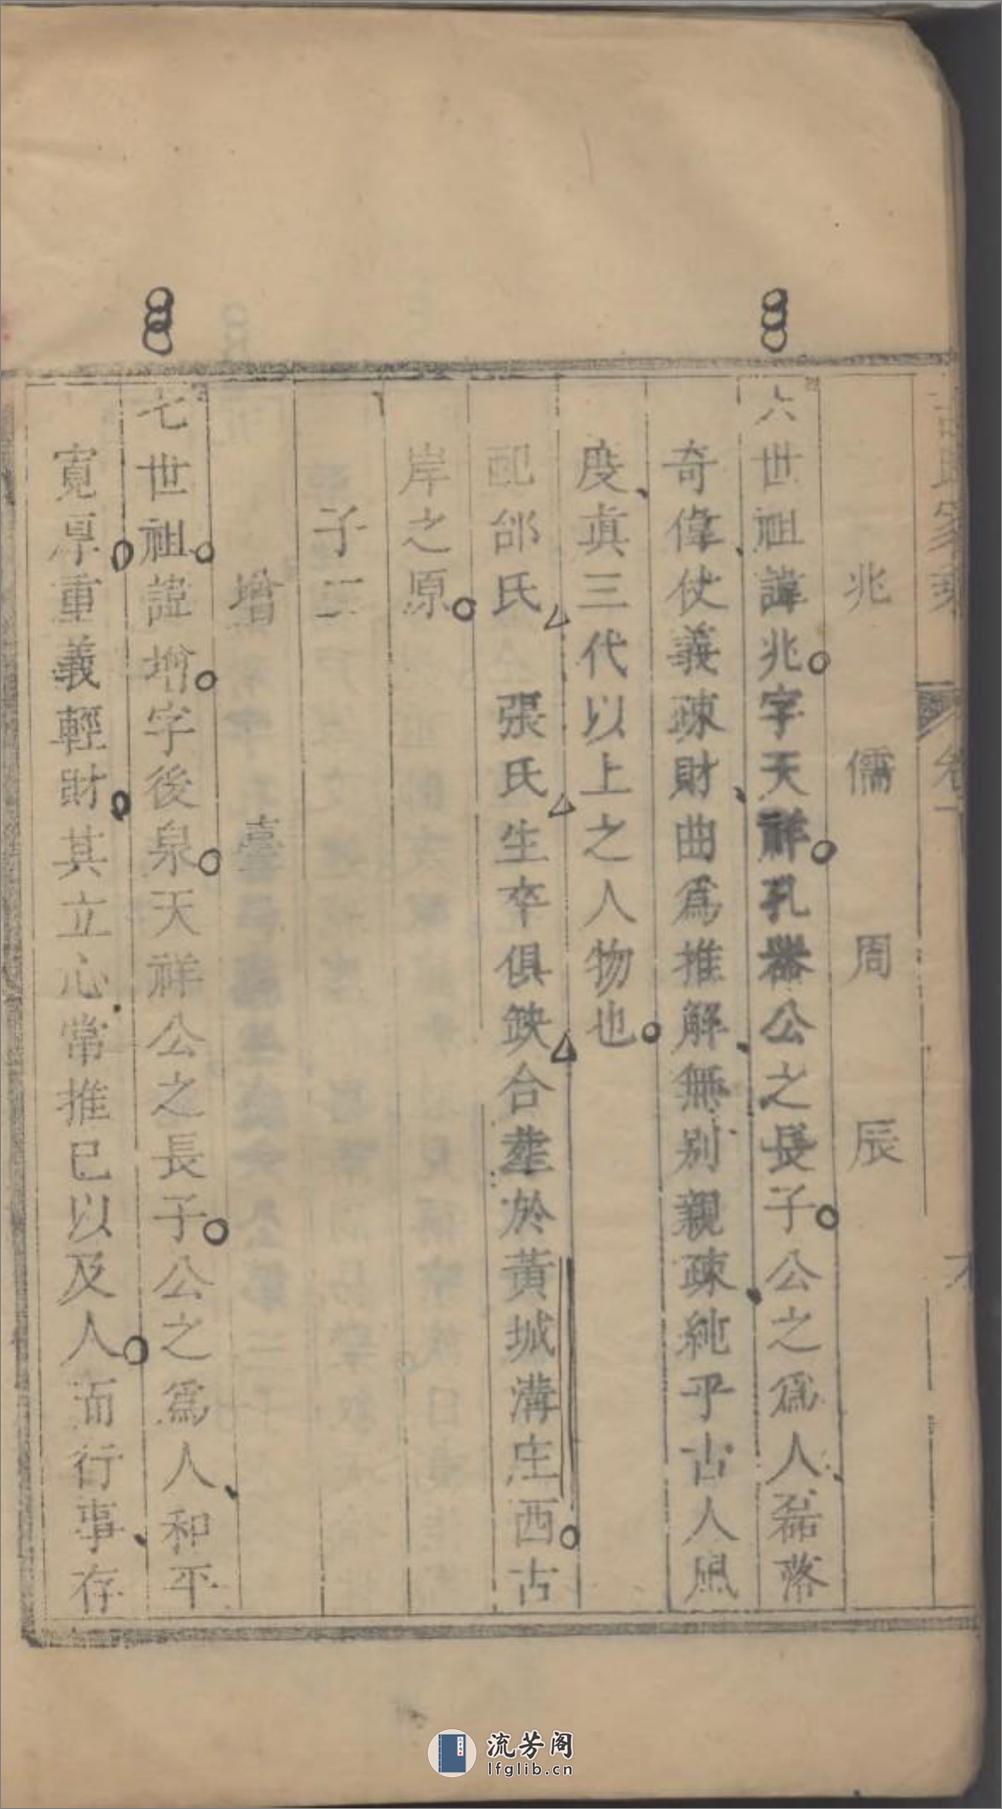 兆 儒 周 辰
六世祖諱兆字天祥孔器公之長子公之爲人磊落
奇偉仗義疎財曲爲推解無别親疎純乎古人風
度眞三代以上之人物也
配邰氏 張氏生卒俱缺合塟於黃城溝庄西古
岸之原
子二
增 臺
七世祖諱增字後泉天祥公之長子公之爲人和平
寛厚重義輕財其立心常推已以及人而行事存
流芳阁
lfglib.cn